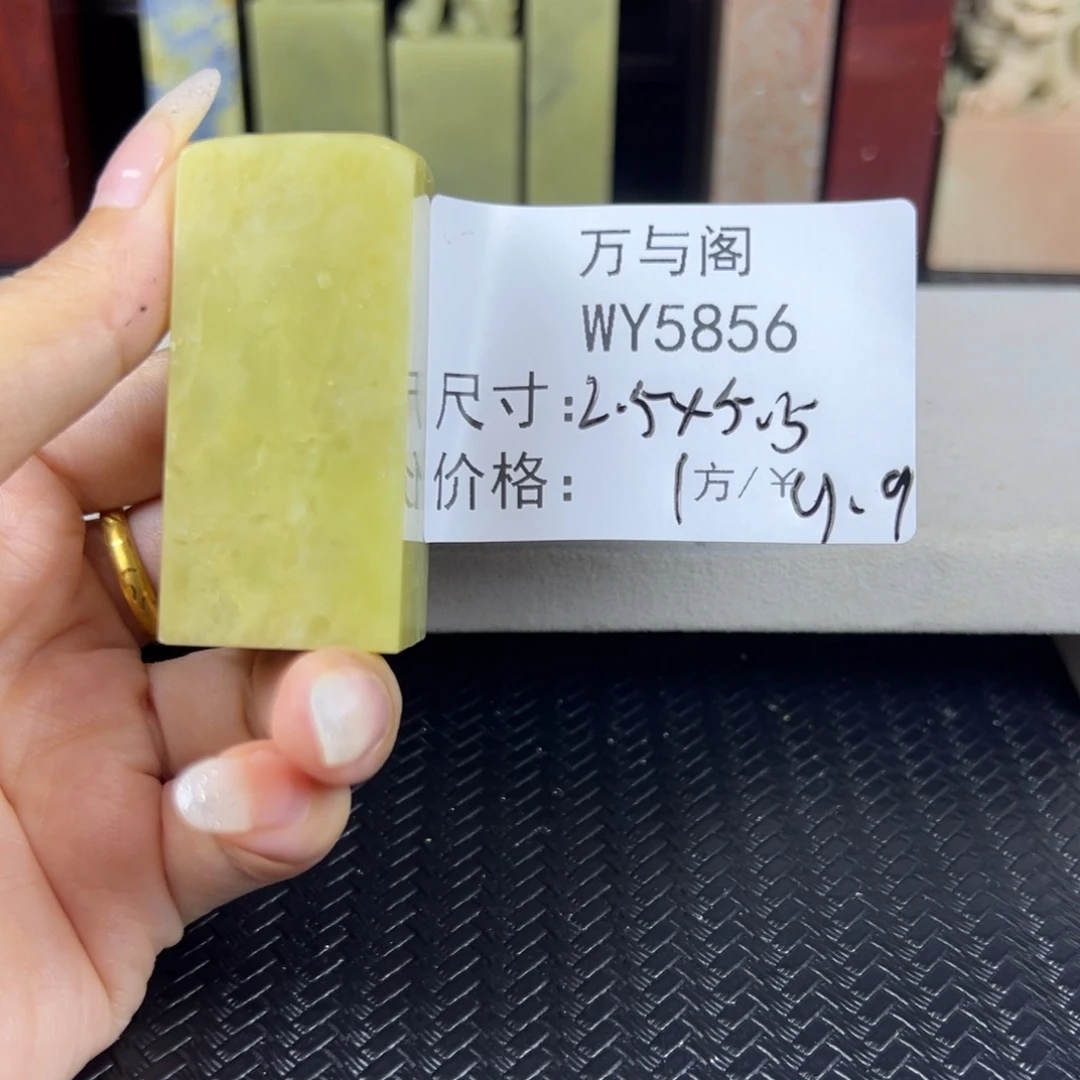 万与阁
WY5856
尺寸:2.5×5.5
价格: 1方/¥4.9